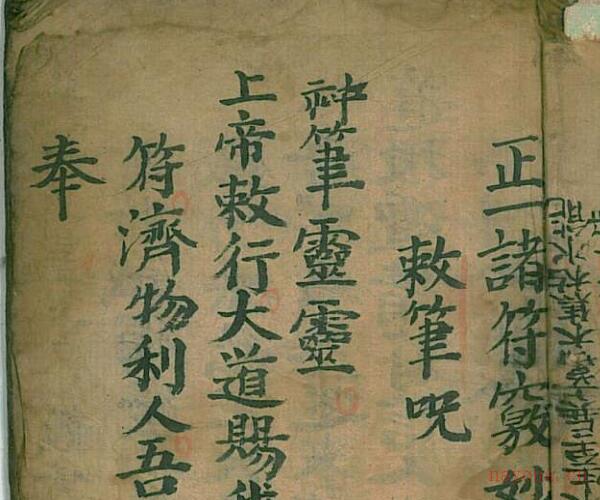 正一諸符竅
敕筆咒
神筆靈靈
上帝敕行大道賜
符濟物利人吾
奉